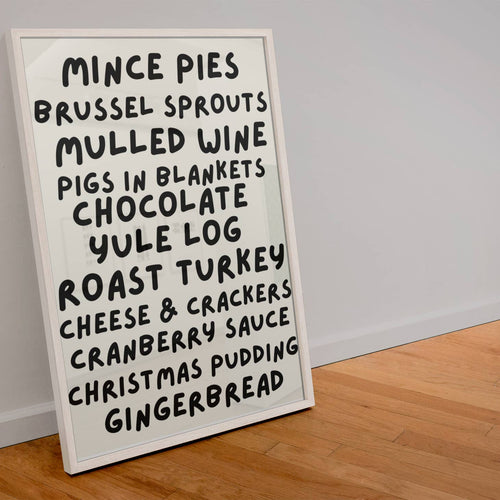 MINCE PIES
BRUSSEL SPROUTS
MULLED WINE
PIGS IN BLANKETS
CHOCOLATE
YULE LOG
ROAST TURKEY
CHEESE & CRACKERS
CRANBERRY SAUCE
CHRISTMAS PUDDING
GINGERBREAD